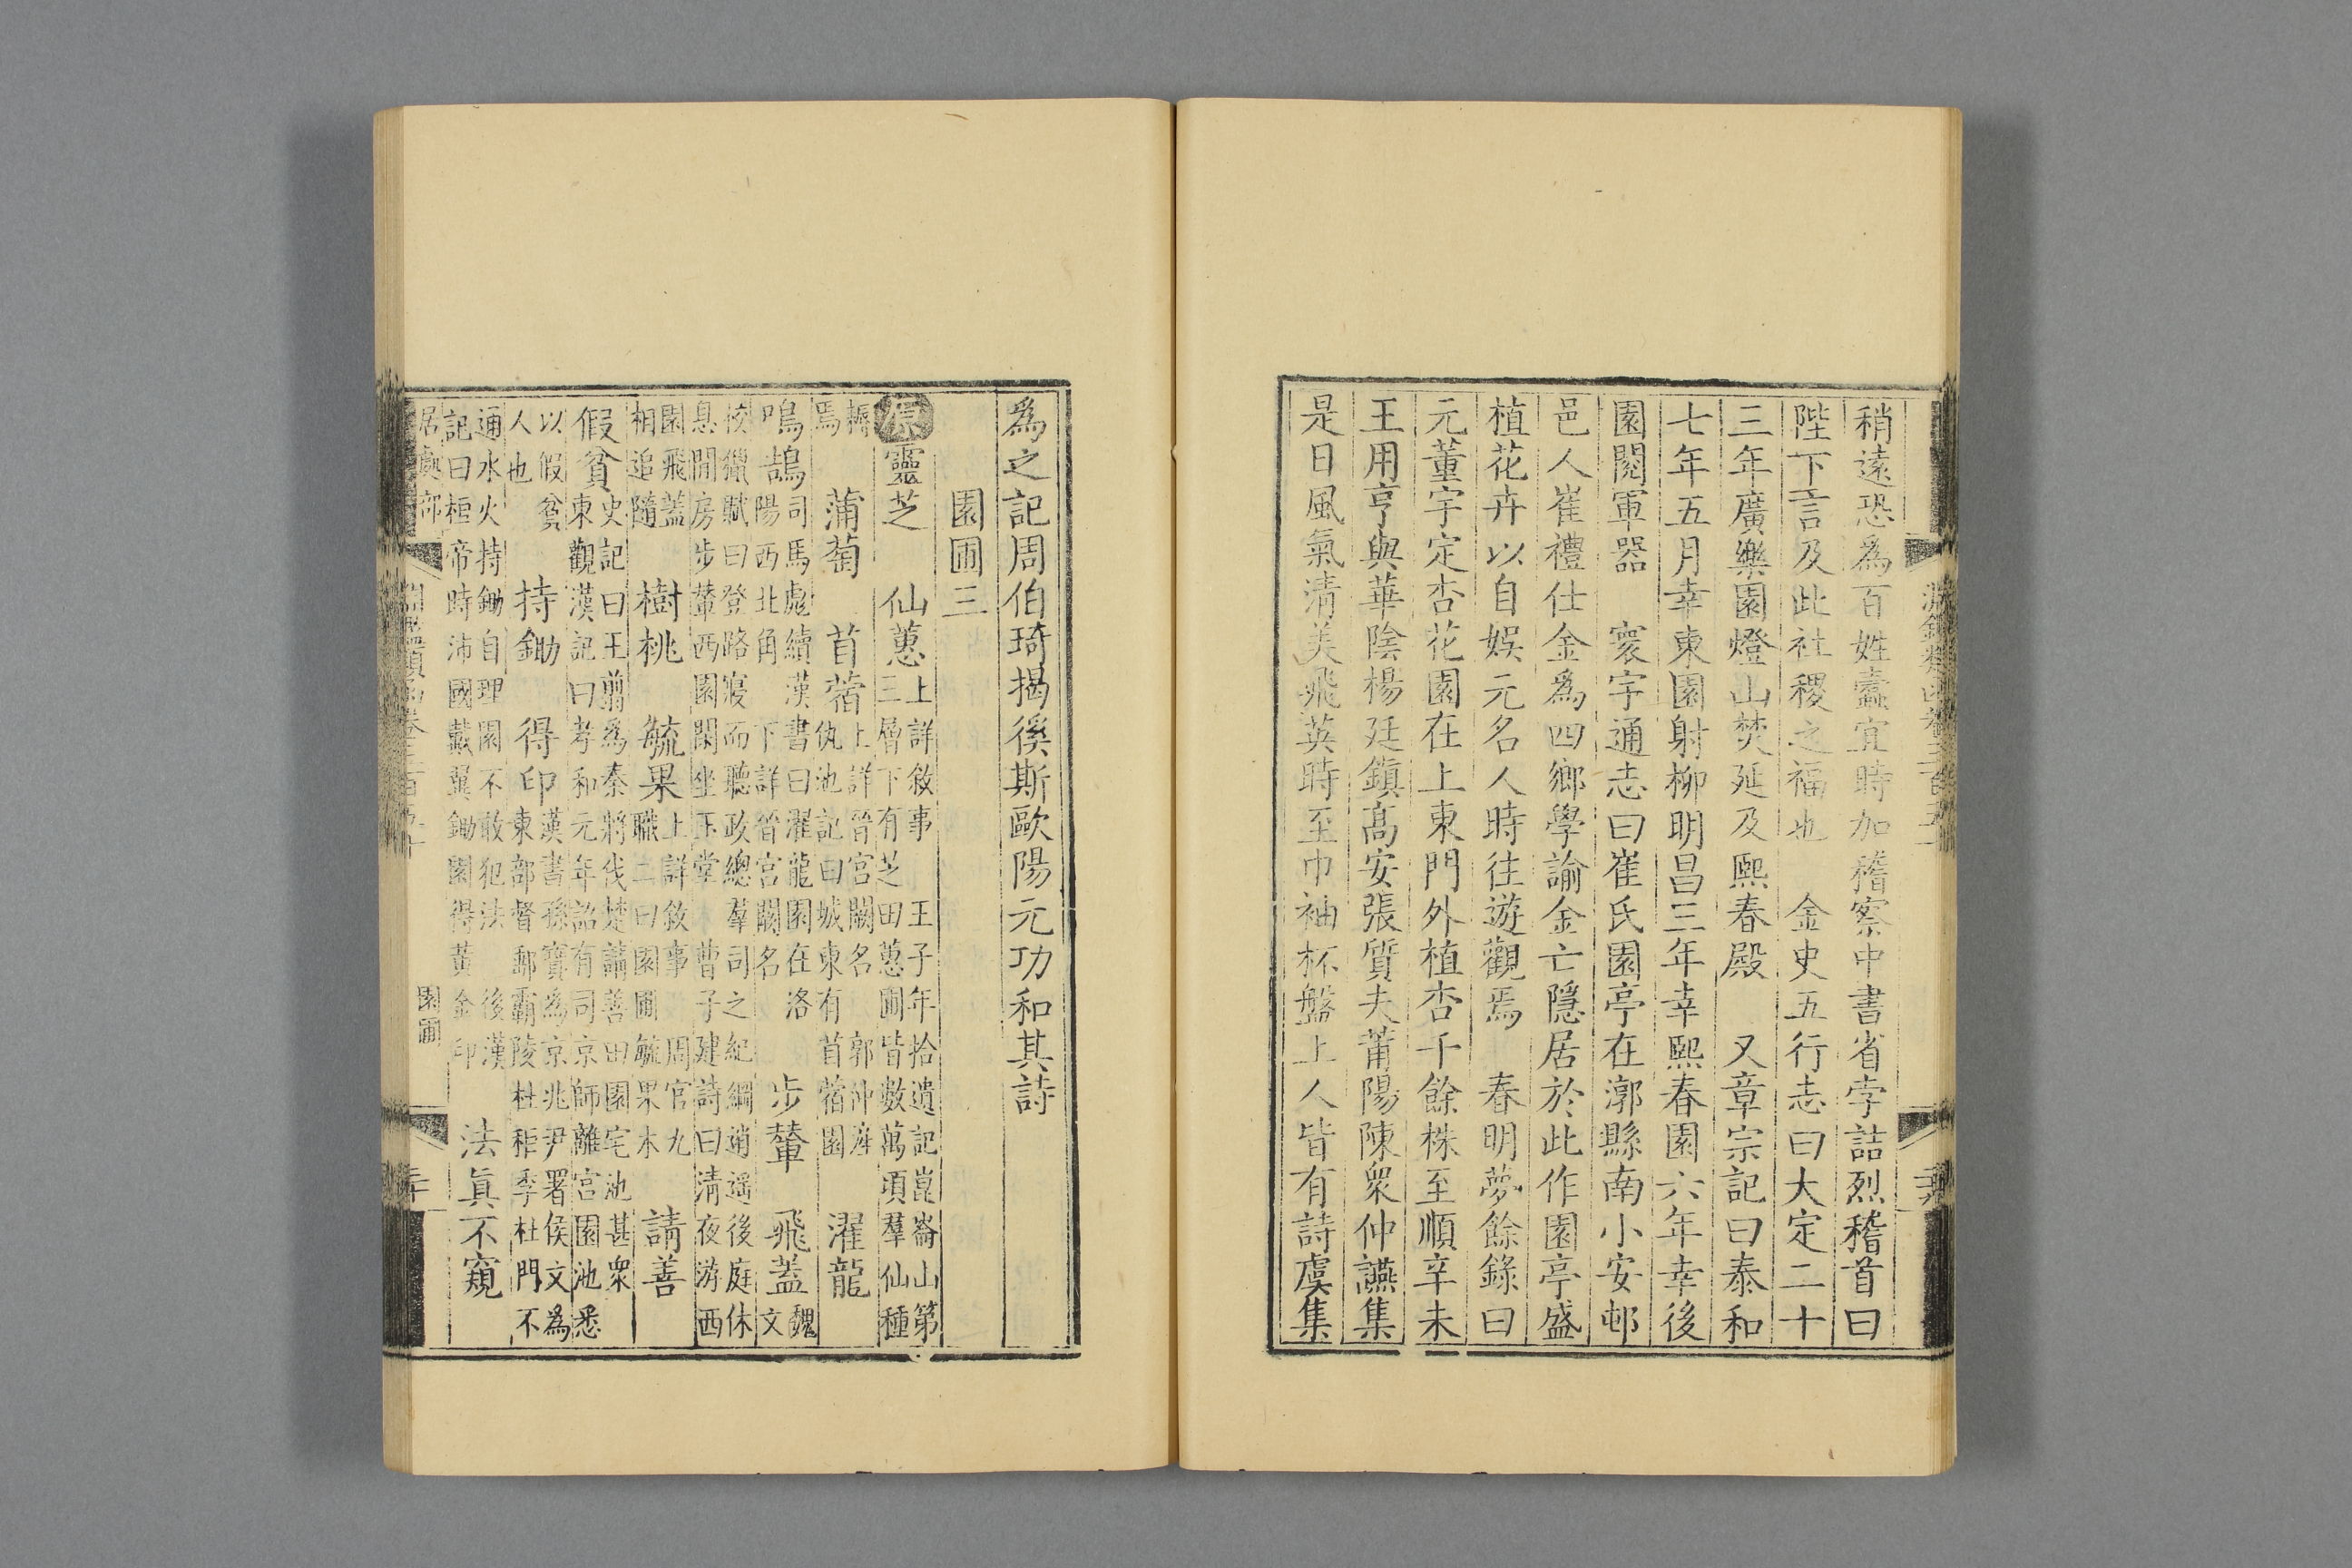 稍遠恐為百姓蠹宜時加稽察中書省孛詰烈稽首曰
陛下言及此社稷之福也　金史五行志曰大定二十
三年廣樂園燈山焚延及熙春殿　又章宗記曰泰和
七年五月幸東園射柳明昌三年幸熙春園六年幸後
園閱軍器　寰宇通志曰崔氏園亭在漷縣南小安邨
邑人崔禮仕金為四鄉學諭金亡隱居於此作園亭盛
植花卉以自娛元名人時往遊觀焉　春明夢餘錄曰
元董宇定杏花園在上東門外植杏千餘株至順辛未
王用亨與華陰楊廷鎮高安張質夫莆陽陳衆仲讌集
是日風氣清美飛英時至巾袖杯盤上人皆有詩虞集
為之記周伯琦揭徯斯歐陽元功和其詩
園圃三
原靈芝　仙蕙上詳敘事　王子年拾遺記崑崙山第
三層下有芝田蕙圃皆數萬頃羣仙種
耨
焉　蒲萄　苜蓿上詳晉宮闕名　郭仲產
仇池記曰城東有苜蓿園　濯龍
鳴鵠司馬彪續漢書曰濯龍園在洛
陽西北角　下詳晉宮闕名　步輦　飛蓋魏
文
校獵賦曰登路寢而聽政總羣司之紀綱逍遙後庭休
息閒房步輦西園閑坐玉堂　曹子建詩曰清夜游西
園飛蓋
相追隨　樹桃　毓果上詳敘事　周官九
職二曰園圃毓果木　請善
史記曰王翦為秦將伐楚請善田園宅池甚衆
假貧東觀漢記曰考和元年詔有司京師離宮園池悉
以假貧
人也　持鋤　得印漢書孫寶為京兆尹署侯文為
東部督郵霸陵杜穉季杜門不
通水火持鋤自理園不敢犯法　後漢
記曰桓帝時沛國戴翼鋤園得黃金印　法真不窺
居處部
園圃